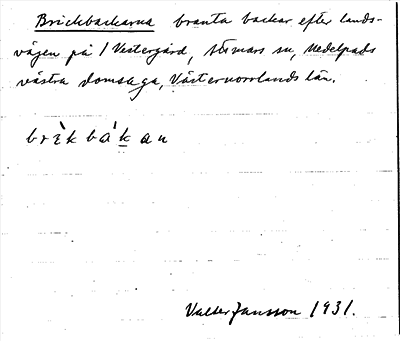 Brickbackarna branta backar efter lands-
vägen på 1 Vestergård, su, Medelpads
västra domsaga, Västernorrlands län.
brìkbákan
Valter Jansson 1931.